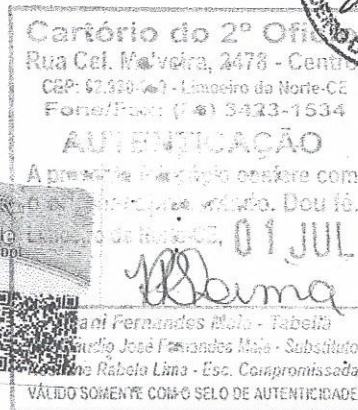 Cartório do 2º Ofi
Rua Cel. Malveira, 2478 - Centro
CEP: 62.930-000 - Limoeiro do Norte-CE
Fone/Fax: 3423-1534
AUTENTICAÇÃO
A confere com
Dou fé.
01 JUL
ani Fernandes Maia - Tabeliã
udio José Fernandes Maia - Substituto
ne Rabelo Lima - Esc. Compromissada
VÁLIDO SOMENTE COM O SELO DE AUTENTICIDADE